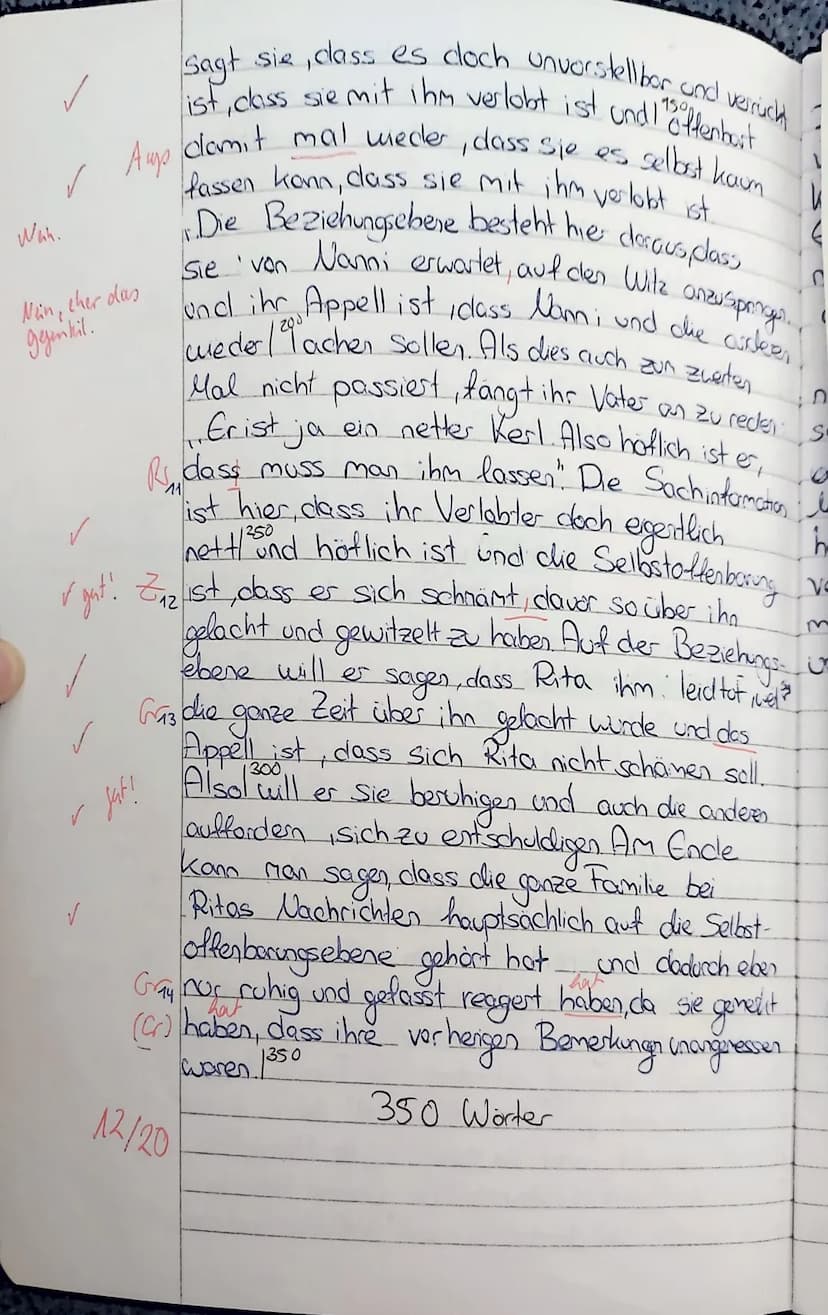 sagt sie, dass es doch unvorstellbar und verrückt
✓ ist, dass sie mit ihm verlobt ist und |150 offenbart
Aus damit mal wieder, dass sie es selbst kaum
✓ fassen kann, dass sie mit ihm verlobt ist.
Wdh. Die Beziehungsebene besteht hier daraus, dass
sie von Nanni erwartet, auf den Witz anzuspringen.
Nein, eher das gegenteil. und ihr Appell ist, dass Nanni und die anderen
wieder |200 lachen sollen. Als dies auch zum zweiten
Mal nicht passiert, fängt ihr Vater an zu reden:
„Er ist ja ein netter Kerl. Also höflich ist er,
Rs 11 dass muss man ihm lassen". Die Sachinformation
ist hier, dass ihr Verlobter doch eigentlich
✓ nett |250 und höflich ist und die Selbstoffenbarung
✓ gut! Z 12 ist, dass er sich schnämt, davor so über ihn
gelacht und gewitzelt zu haben. Auf der Beziehungs-
✓ ebene will er sagen, dass Rita ihm leidtut, weil
Gr 13 die ganze Zeit über ihn gelacht wurde und das
✓ Appell ist, dass sich Rita nicht schämen soll.
Also |300 will er sie beruhigen und auch die anderen
✓ gut! auffordern, sich zu entschuldigen. Am Ende
kann man sagen, dass die ganze Familie bei
✓ Ritas Nachrichten hauptsächlich auf die Selbst-
offenbarungsebene gehört hat und dadurch eben
hat
Gr 14 nur ruhig und gefasst reagiert haben, da sie gemerkt
hat
(Gr) haben, dass ihre vorherigen Bemerkungen unangemessen
waren. |350
350 Wörter
12/20